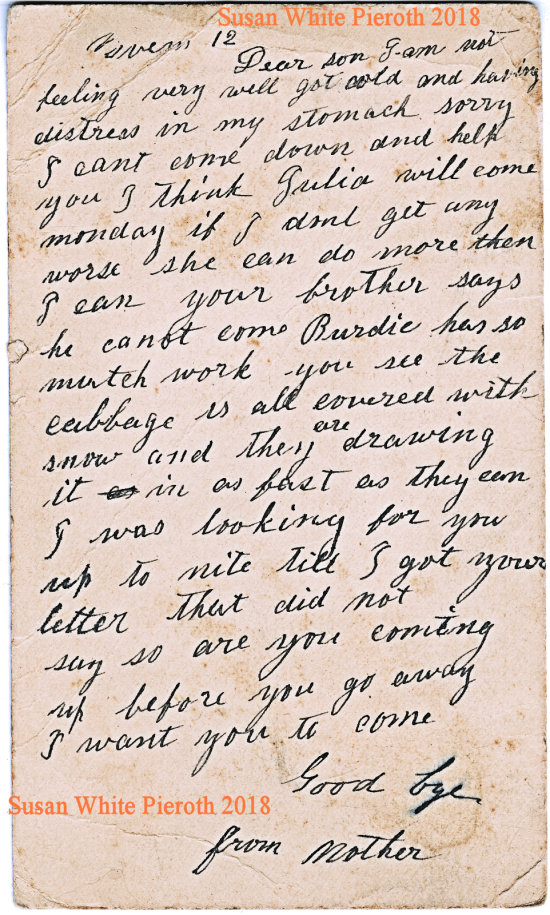 Susan White Pieroth 2018
Novem 12
Dear son I am not
feeling very well got cold and having
distress in my stomach sorry
I cant come down and help
you I think Julia will come
monday if I dont get any
worse she can do more then
I can your brother says
he canot come Burdie has so
mutch work you see the
cabbage is all covered with
snow and they are drawing
it in as fast as they can
I was looking for you
up to nite till I got your
letter that did not
say so are you comeing
up before you go away
I want you to come
Good bye
Susan White Pieroth 2018
from Mother